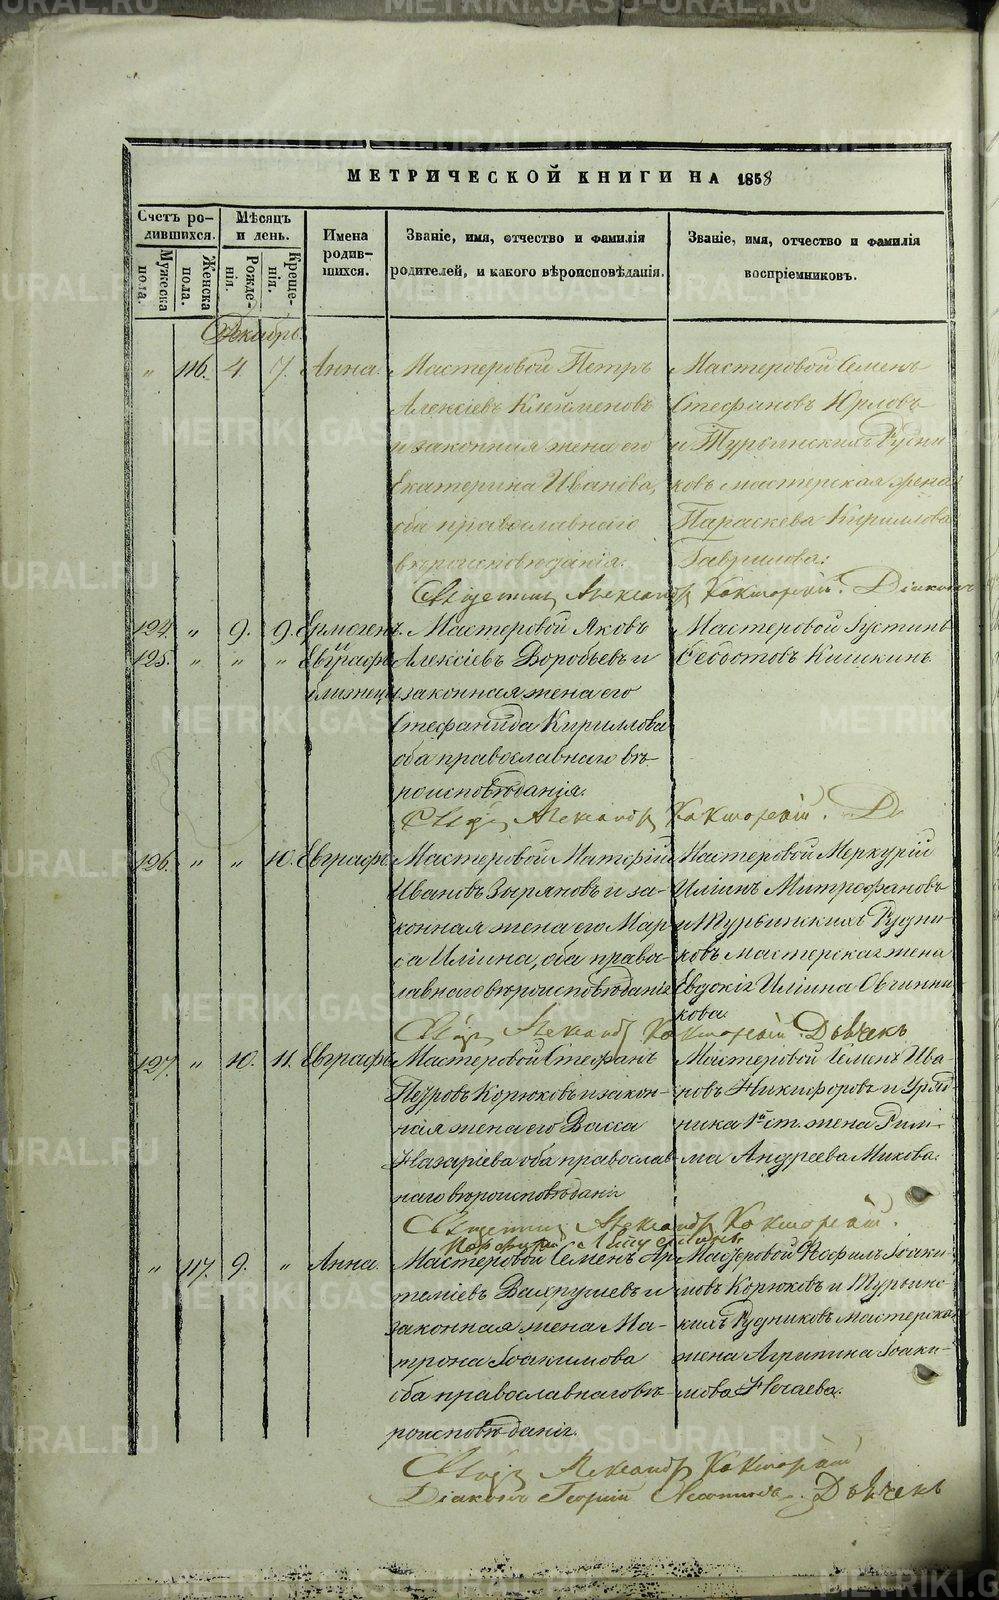 МЕТРИЧЕСКОЙ КНИГИ НА 1858
Счетъ родившихся.
Мужеска пола.
Женска пола.
Мѣсяцъ и день.
Рожденія.
Крещенія.
Имена родившихся.
Званіе, имя, отчество и фамилія родителей, и какого вѣроисповѣданія.
Званіе, имя, отчество и фамилія воспріемниковъ.
Декабрь.
„ 116. 4. 7. Анна.
Мастеровой Петръ
Алексіевъ Клейменовъ
и законная жена его
Екатерина Иванова,
оба православнаго
вѣроисповѣданія.
Мастеровой Семенъ
Стефановъ Юрловъ
и Турьинскихъ Рудни
ковъ мастерская жена
Параскева Кириллова
Гаврилова.
Священникъ Александръ Діаконъ
124. „ 9. 9. Ермогенъ.
125. „ „ „ Евграфъ
близнецы
Мастеровой Яковъ
Алексіевъ Воробьевъ и
законная жена его
Стефанида Кириллова
оба православнаго вѣ-
роисповѣданія.
Мастеровой Іустинъ
Севостовъ Кишкинъ.
Свящ. Александръ
126. „ „ 10. Евграфъ
Мастеровой Матфій
Ивановъ Зыряновъ и за-
конная жена его Мар
а Иліина, оба право-
славнаго вѣроисповѣданія
Мастеровой Меркурій
Иліинъ Митрофановъ
и Турьинскихъ Рудни-
ковъ мастерская жена
Евдокія Иліина Овчинни
кова.
Свящ. Александръ Дьячекъ
127. „ 10. 11. Евграфъ
Мастеровой Стефанъ
Петровъ Корюковъ и закон-
ная жена его Васса
Назаріева оба православ-
наго вѣроисповѣданія
Мастеровой Семенъ Ива-
новъ Никифоровъ и Уряд-
ника 1й ст. жена Рим-
ма Андреева Микова.
Священникъ Александръ
„ 117. 9. „ Анна.
Мастеровой Семенъ Ар
теміевъ Вахрушевъ и
законная жена Ма-
трона Іоакимова
оба православнаго вѣ-
роисповѣданія.
Мастеровой Іоаки-
мовъ Корюковъ и Турьинс-
кихъ Рудниковъ мастерская
жена Агрипина Іоаки-
мова Нечаева.
Свящ. Александръ
Діаконъ Георгій Дьячекъ